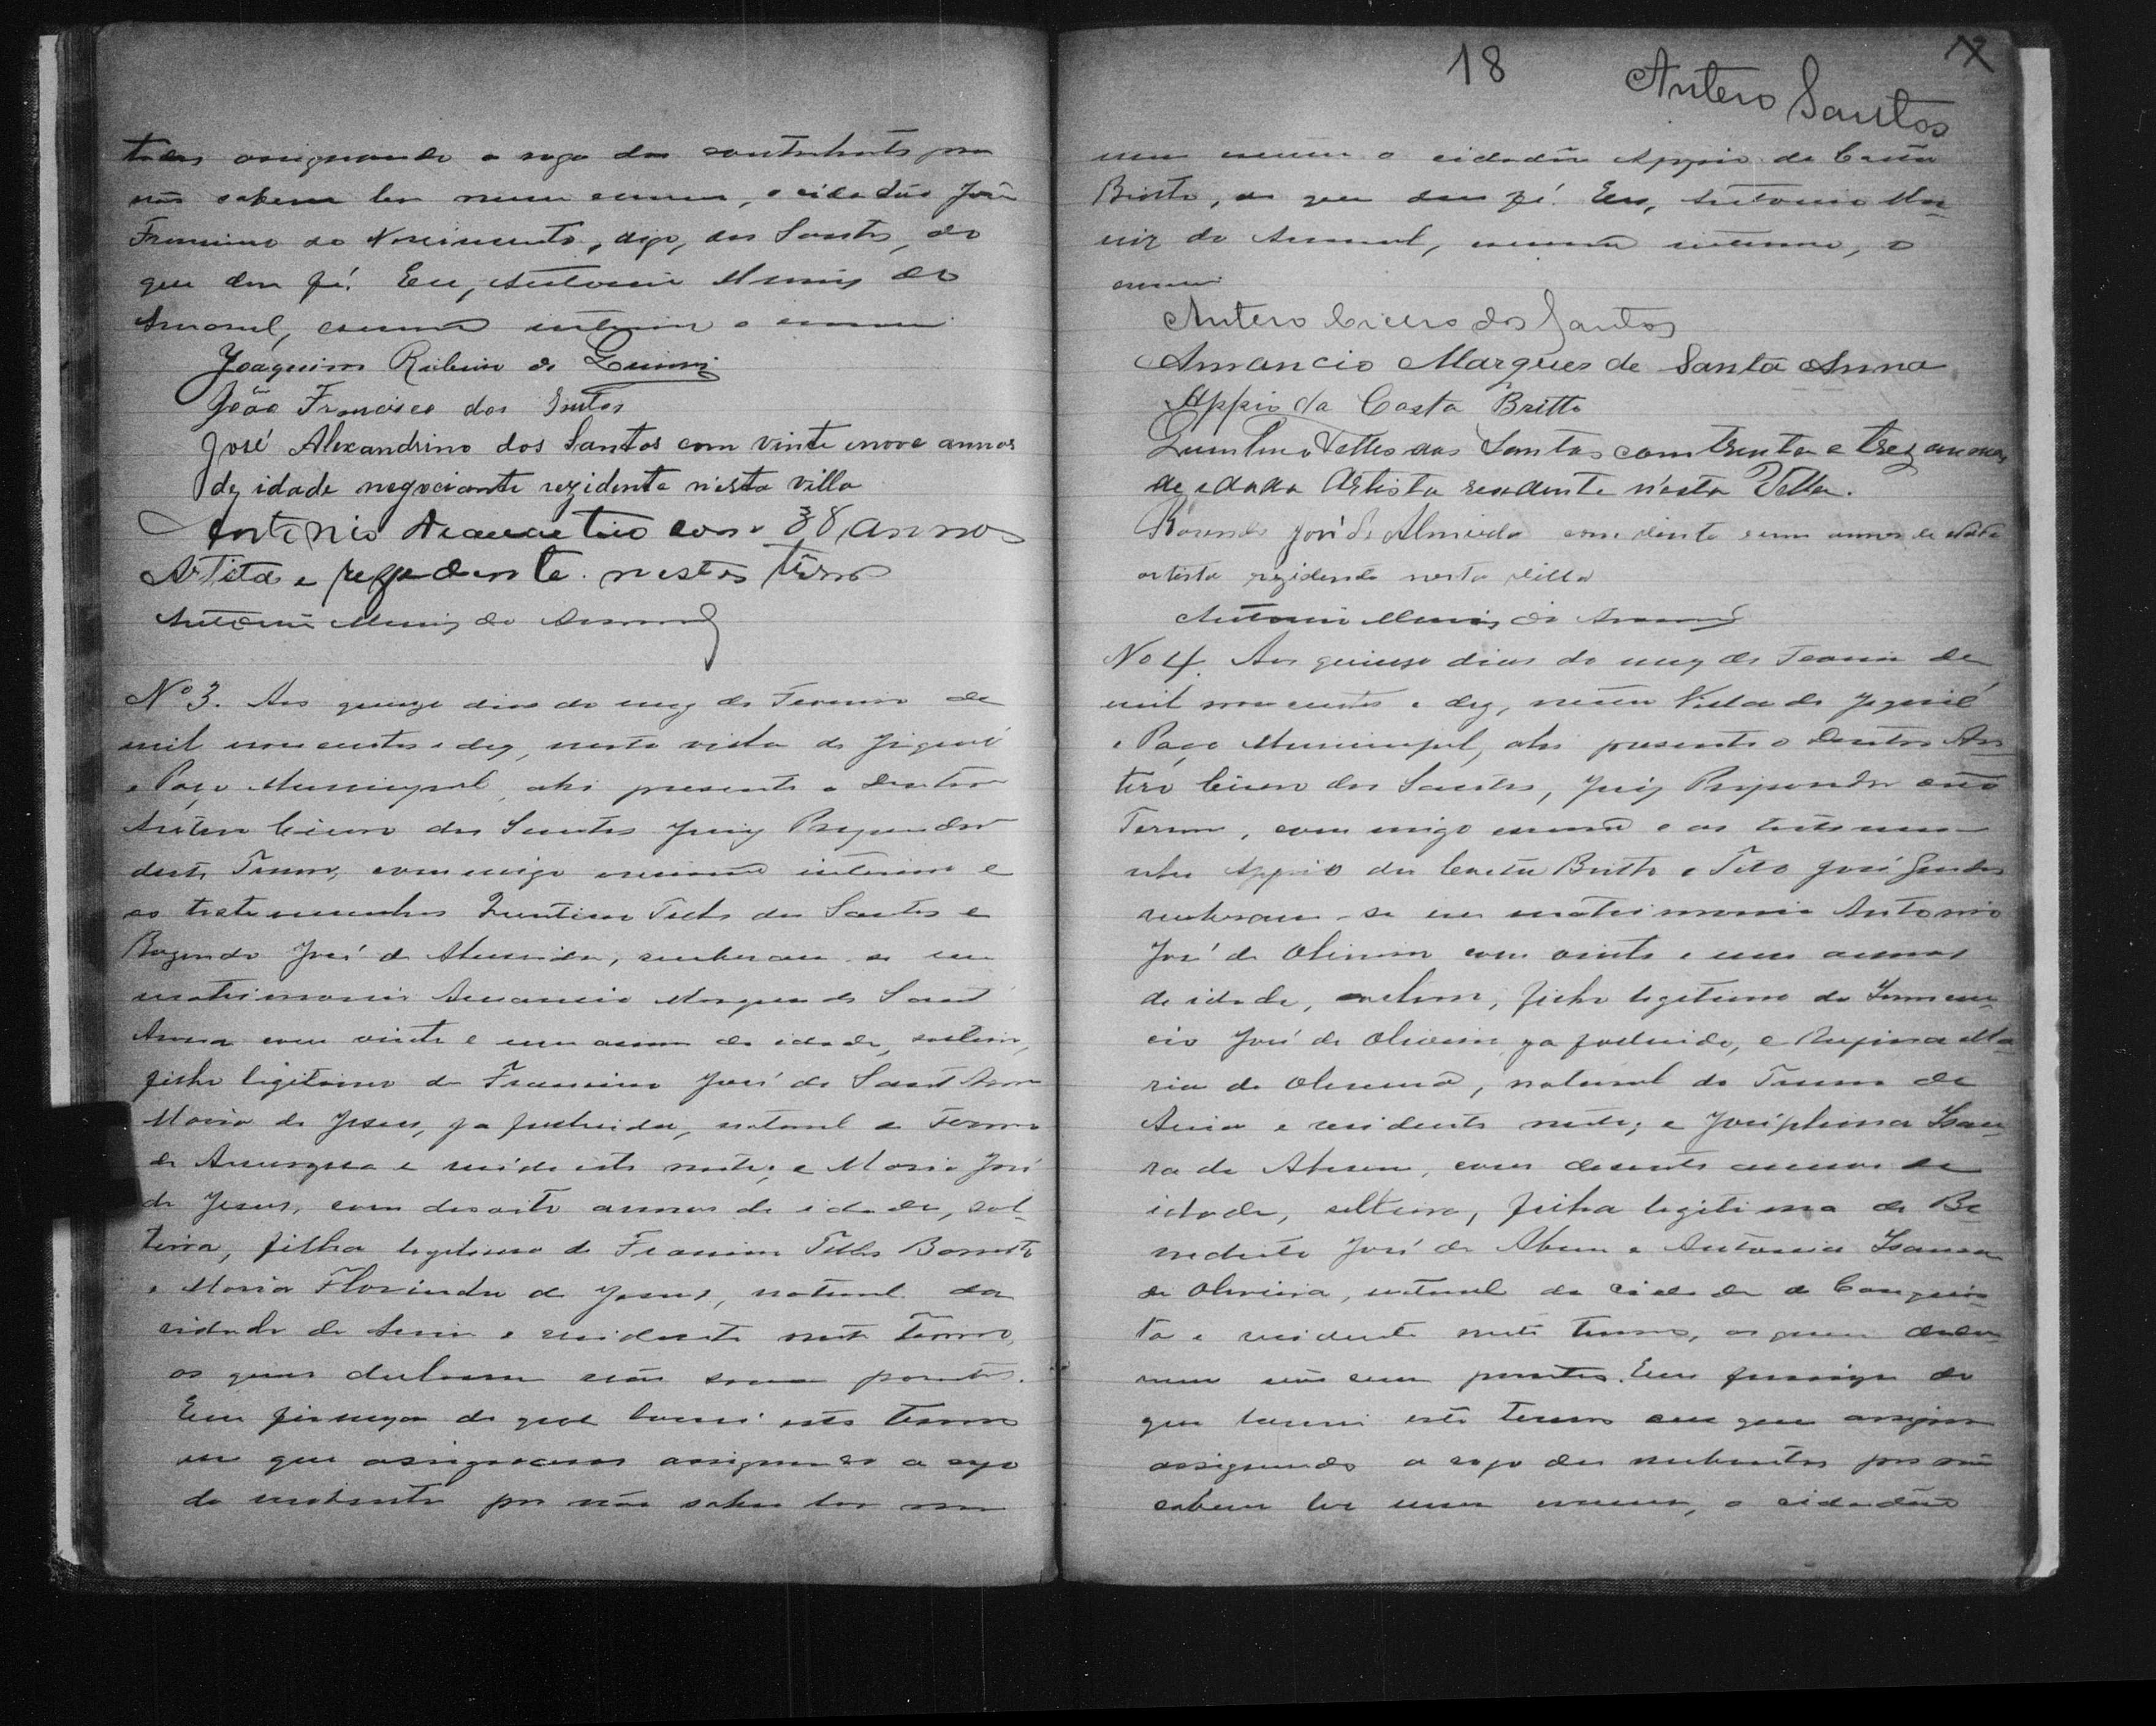 todos assignando a rogo dos contratantes por
não saberem ler nem escrever, o cidadão João
Francisco do Nascimento, digo, dos Santos, do
que dou fé. Eu, Antonio Muniz do
Amaral, escrivão interino o escrevi
Joaquim Ribeiro de
João Francisco dos Santos
José Alexandrino dos Santos com vinte enove annos
de idade negociante rezidente n'esta villa
Antonio com 38 annos
Artita e rezedente nestes têrmo
Antonio Muniz do Amaral
Nº 3. Aos quinze dias do mez de Janeiro de
mil nove centos e dez, nesta villa de Jequié
e Paço Municipal, ahi presente o Doutor
Antero Cicero dos Santos Juiz Preparador
deste Termo, commigo escrivão interino e
as testemunhas Quintino Telles dos Santos e
Rozendo José de Almeida, receberam-se em
matrimonio Amancio Marques de Sant
Anna com vinte e um annos de idade, solteiro,
filho legitimo de Francisco José de Sant Anna
Maria de Jesus, ja fallecida, natural do Termo
de e residente neste; e Maria José
de Jesus, com desoito annos de idade, sol-
teira, filha legitima de Telles Barreto
e Maria Florinda de Jesus, natural da
cidade de Areia e residente neste Termo,
os quaes declaram não serem parentes.
Em firmeza do que lavrei este termo
em que assignaram assignando a rogo
da nubente por não saber ler nem
18
Antero Santos
17
nem escrever o cidadão Appio da Costa
Britto, do que dou fé. Eu, Antonio Mu-
niz do Amaral, escrivão interino, o
escrevi
Antero Cicero dos Santos
Amancio Marques de Santa Anna
Appio da Costa Britto
Quintino Telles dos Santos com trenta e trez annos
de edade Artista resedente n'esta Villa.
Rosendo José de Almeida com vinte e um annos de idade
artista rezidende nesta villa
Antonio Muniz do Amaral
No 4. Aos quinze dias do mez de Janeiro de
mil nove centos e dez, nesta Villa de Jequié
e Paço Municipal, ahi presente o Doutor An-
tero Cicero dos Santos, Juiz Preparador
Termo, commigo escrivão e as testemu-
nhas Appio da Costa Britto e Tito José
receberam-se em matrimonio Antonio
José de Oliveira com vinte e um annos
de idade, solteiro, filho legitimo de
cio José de Oliveira ja fallecido, e Rufina Ma-
ria de Oliveira, natural do Termo de
Areia e residente neste; e Josephina Isau-
ra de Abreu, com annos de
idade, solteira, filha legitima de Be-
nedicto José de Abreu e Antonia Isaura
de Oliveira, natural da cidade de Conquis-
ta e residente neste termo, os quaes decla-
ram não serem parentes. Em firmeza do
que lavrei este termo em que assignam
assignando a rogo dos nubentes por não
saberem ler nem escrever, o cidadão